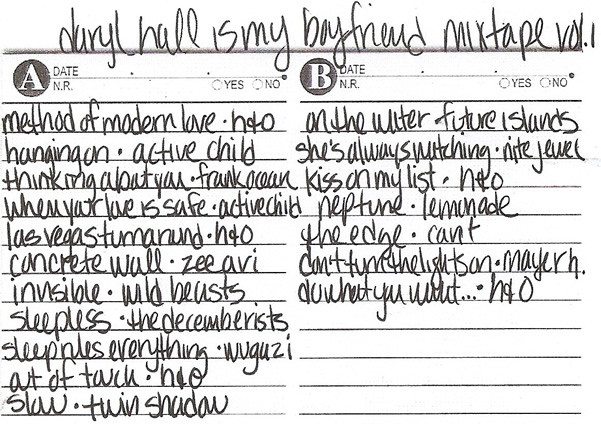 daryl hall is my boyfriend mixtape vol.1
A DATE
N.R. YES NO
method of modern love · h&o
hanging on · active child
thinking about you · frank ocean
when your love is safe · active child
las vegas turnaround · h&o
concrete wall · zee avi
invisible · wild beasts
sleepless · the decemberists
sleep rules everything · wugazi
out of touch · h&o
slow · twin shadow
B DATE
N.R. YES NO
on the water future islands
she's always watching · nite jewel
kiss on my list · h&o
neptune · lemonade
the edge · cant
don't turn the lights on · mayer h.
do what you want... · h&o